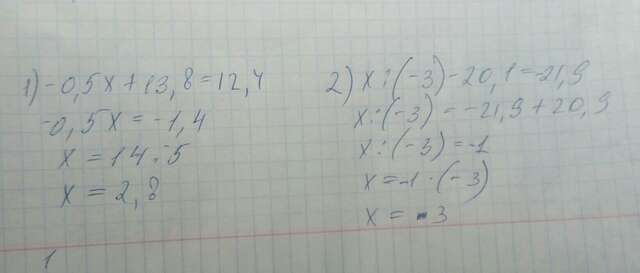 1) -0,5x + 13,8 = 12,4
-0,5x = -1,4
x = 14 : 5
x = 2,8
2) x : (-3) - 20,1 = -21,9
x : (-3) = -21,9 + 20,9
x : (-3) = -1
x = -1 · (-3)
x = -3
1